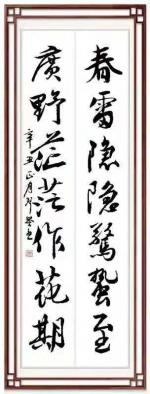 春雷隐隐驚蟄至
廣野茫茫作花期
辛丑正月